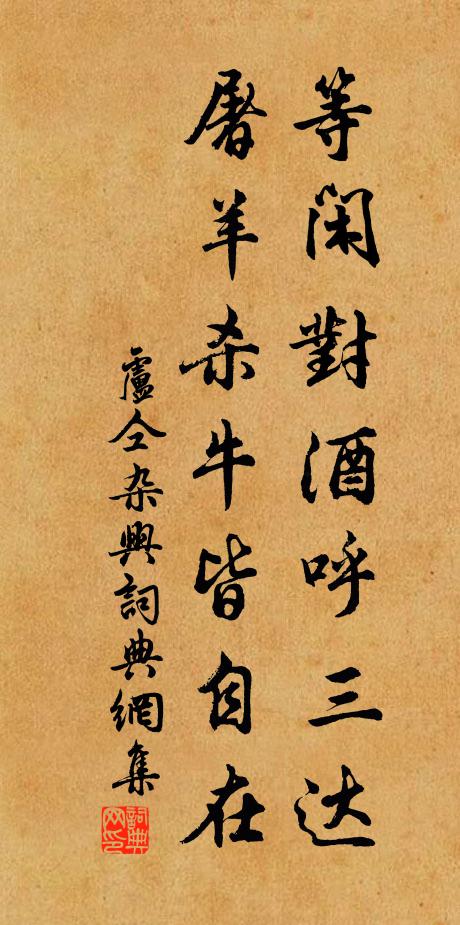 等闲對酒呼三达
屠羊杀牛皆自在
盧仝杂興詞典網集
詞典网印